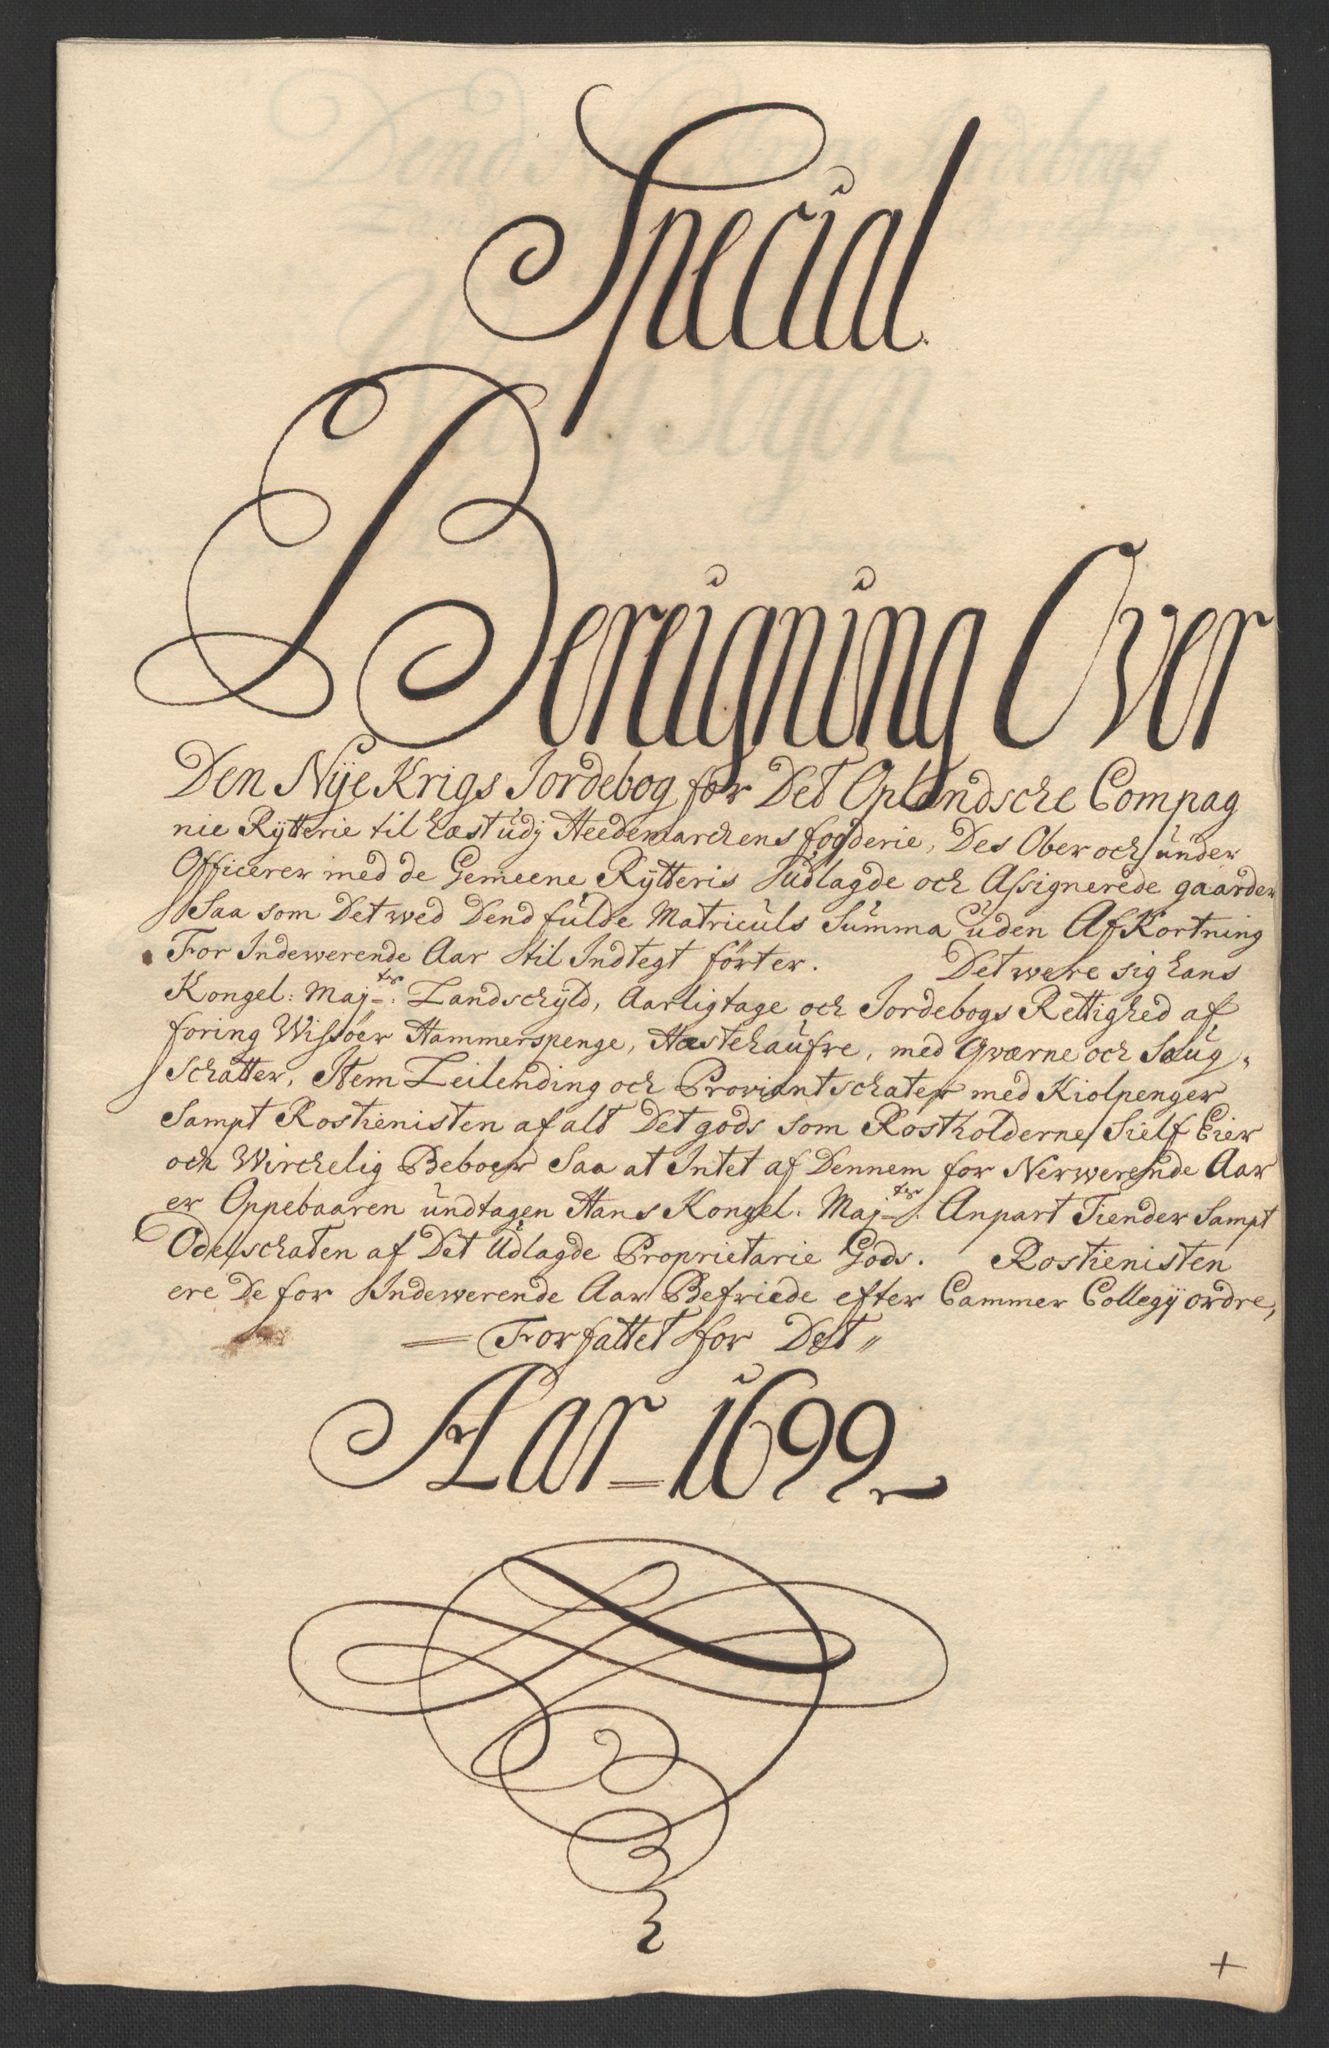 Special
Bereigning Over
Den Nÿe Krigs Jordebog for Det Oplandsche Compag
nie Rÿtterie til hæst udj Heedemarchens fogderie, Des Ober och under
Officerer med de Gemeene Rÿtteris Udlagde och Assignerede gaarder
Saa som Det wed Dend fulde Matriculs Summa uden AfKortning
For Indewerende Aar til Indtegt förter. Det were sig hans
Kongel: Maj:ts: Landschÿld, Aarligtage och Jordebogs Rettighed af
foring Wissöer Hammerspenge, Hæstehaufre, med Qværne och Saug,
Schatter, Item Leilending och Proviantschater med Kiolpenger
Sampt Rostienisten af alt Det gods som Rostholderne Sielf Eier
och Wirchelig Beboer Saa at Intet af Dennem for Nerwerende Aar
er Oppebaaren undtagen Hans Kongel. Maj:ts: Anpart Tiender Sampt
Odelschaten af Det Udlagde Proprietarie Gods. Rostienisten
ere De for Indewerende Aar Befriede efter Cammer Collegÿ ordre,
= Forfattet for Det "
Aar = 1699
+